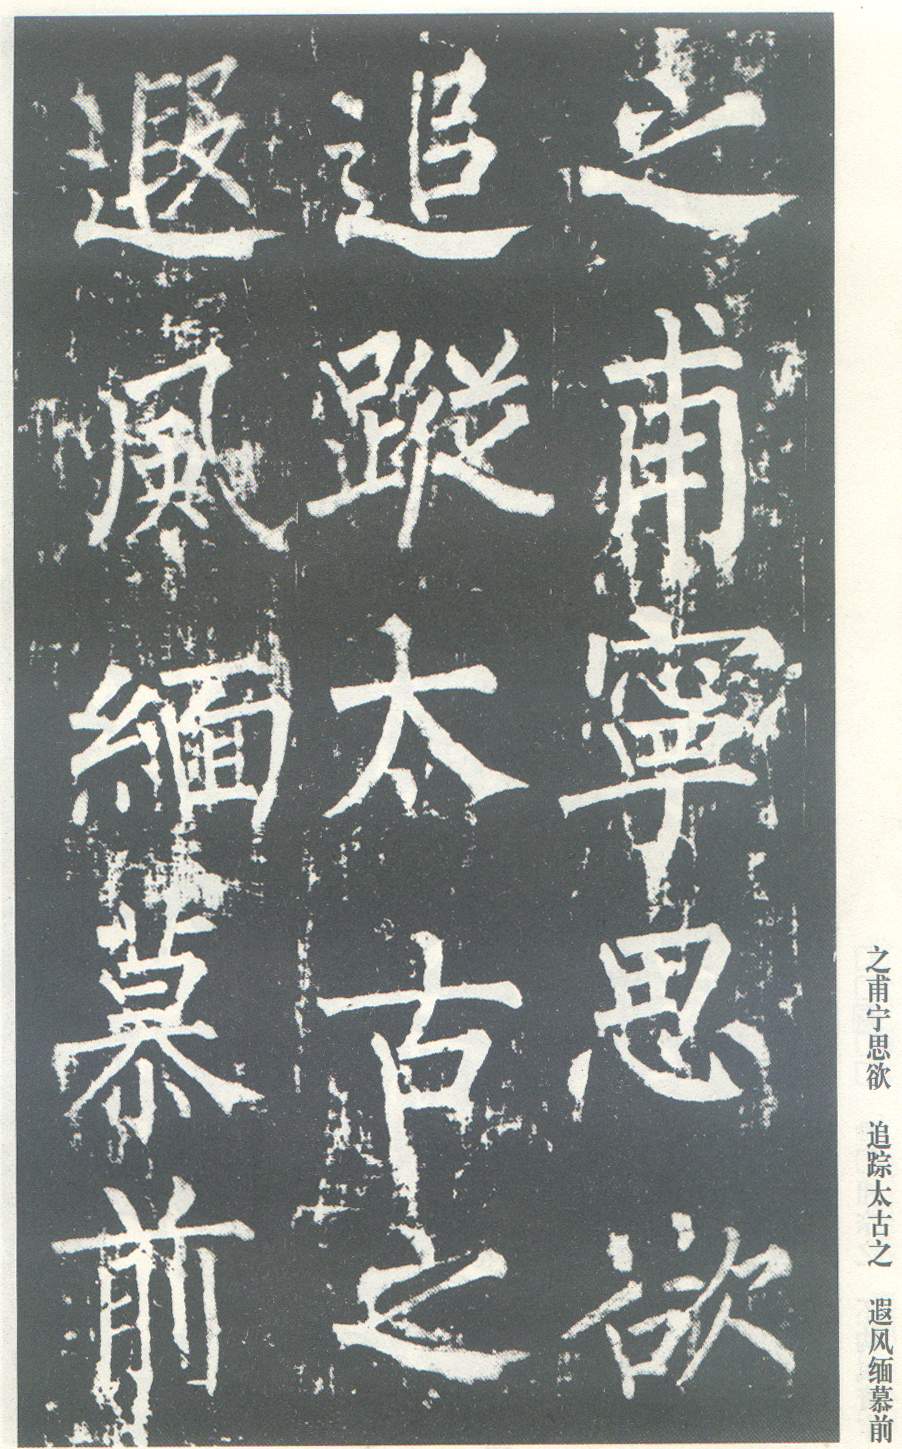 之甫寧思欲
追蹤太古之
遐風緬慕前
之甫宁思欲 追踪太古之 遐风缅慕前